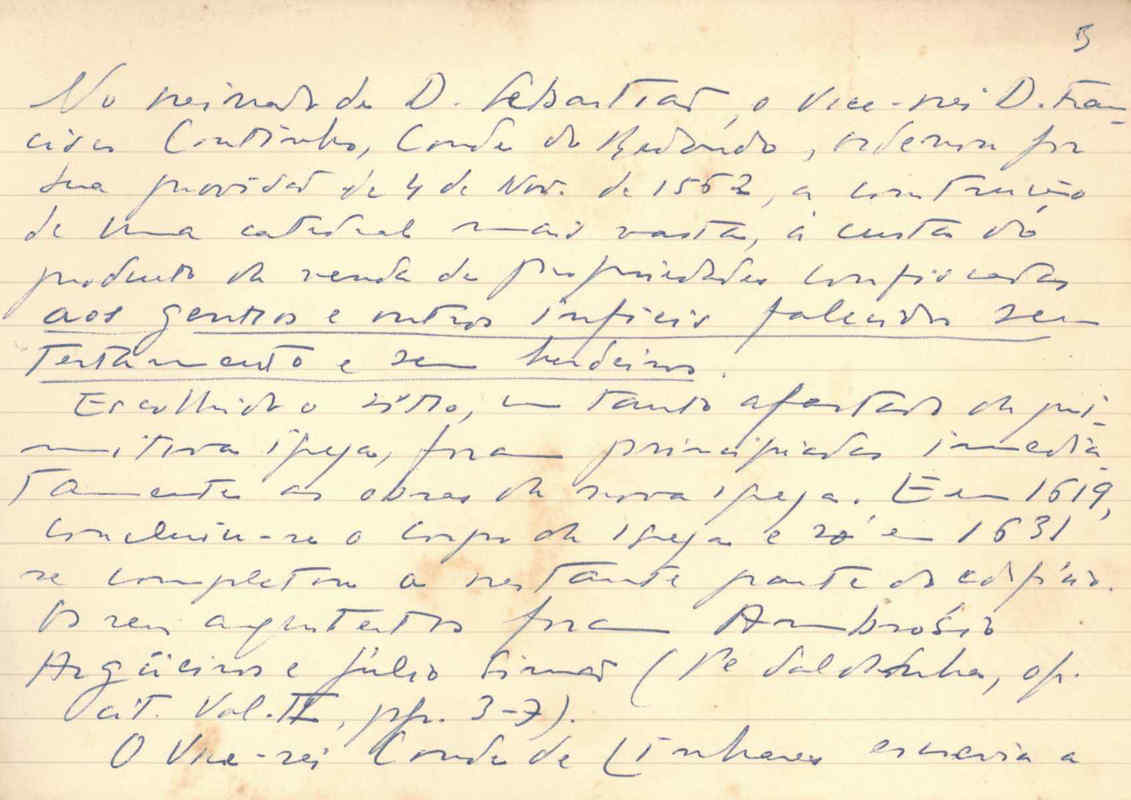 5
No reinado de D. Sebastião, o Vice-rei D. Fran-
cisco Coutinho, Conde do Redondo, ordenou por
sua provisão de 4 de Nov. de 1562, a construção
de uma catedral mais vasta, à custa do
produto da venda de propriedades confiscadas
aos gentios e outros infieis falecidos sem
testamento e sem herdeiros.
Escolhido o sítio, um tanto afastado da pri-
mitiva igreja, foram principiadas imedia-
tamente as obras da nova igreja. E em 1619,
concluiu-se o corpo da igreja e só em 1631
se completou a restante parte do edifício.
Os seus arquitectos foram Ambrósio
Argüeiros e Júlio Simão (Pe Saldanha, op.
cit. Vol. II, pp. 3-7).
O Vice-rei Conde de Linhares escrevia a